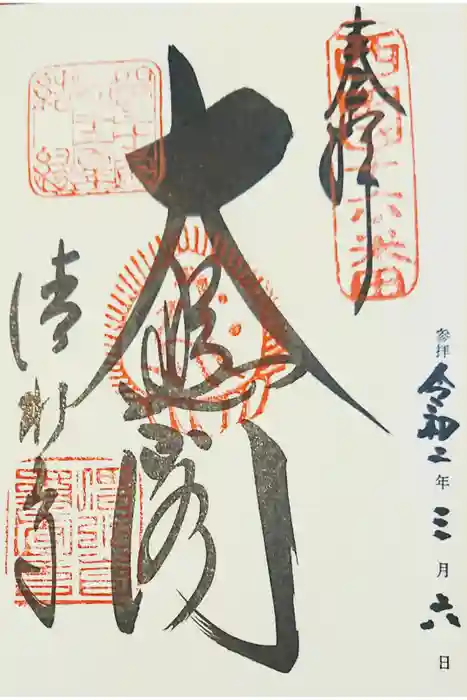 参拝 令和二年三月六日
奉拝
西国十六番
大悲閣
清水寺